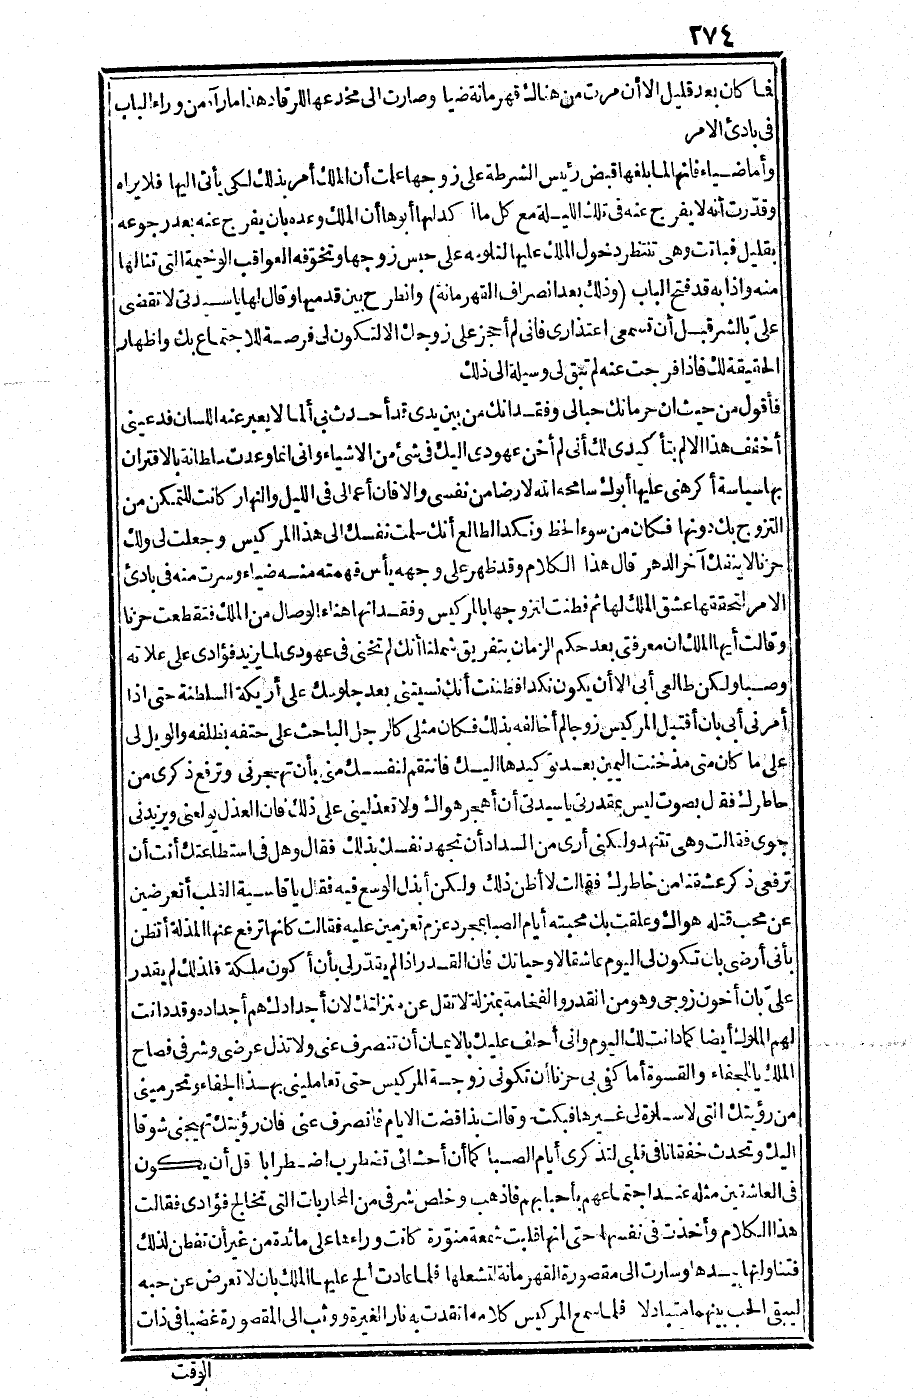 ٢٧٤
فما كان بعد قليل الا أن مرت من هنالك قهرمانة ضيا وصارت الى مخدعها للرقاد هذا ما رآه من وراء الباب
فى بادئ الامر
وأما ضياء فانها لما بلغها قبض رئيس الشرطة على زوجها علمت أن الملك أمر بذلك لكى يأتى اليها فلا يراه
وقدّرت أنه لا يفرج عنه فى تلك الليلة مع كل ما أكد لها أبوها أن الملك وعده بان يفرج عنه بعد رجوعه
بقليل فباتت وهى تنتظر دخول الملك عليها لتلومه على حبس زوجها وتخوّفه العواقب الوخيمة التى تنالها
منه واذا به قد فتح الباب (وذلك بعد انصراف القهرمانة) وانطرح بين قدميها وقال لها يا سيدتى لا تقضى
علىّ بالشر قبل أن تسمعى اعتذارى فانى لم أحجز على زوجك الا لتكون لى فرصة للاجتماع بك واظهار
الحقيقة لك فاذا فرجت عنه لم تبق لى وسيلة الى ذلك
فأقول من حيث ان حرمانك حبالى وفقدانك من بين يدى قد أحدث بى ألما لا يعبر عنه اللسان فدعينى
أخفف هذا الالم بتأكيدى لك أنى لم أخن عهودى اليك فى شئ من الاشياء وانى انما وعدت سلطانة بالاقتران
بها سياسة أكرهنى عليها أبوك سامحه الله لا رضا من نفسى والا فان أعمالى فى الليل والنهار كانت للتمكن من
التزوج بك دونها فكان من سوء الحظ ونكد الطالع أنك سلمت نفسك الى هذا المركيس وجعلت لى ولك
حزنا لا ينفك آخر الدهر قال هذا الكلام وقد ظهر على وجهه يأس فهمته منه ضياء وسرت منه فى بادئ
الامر لتحققها عشق الملك لها ثم فطنت لتزوجها بالمركيس وفقدانها هناء الوصال من الملك فتقطعت حزنا
وقالت أيها الملك ان معرفتى بعد حكم الزمان بتفريق شملنا أنك لم تخنى فى عهودى لما يزيد فؤادى على علاته
وصبا ولكن طالعى أبى الا أن يكون نكدا فظننت أنك نسيتنى بعد جلوسك على أريكة السلطنة حتى اذا
أمرنى أبى بان أقتبل المركيس زوجا لم أخالفه بذلك فكان مثلى كالرجل الباحث على حتفه بظلفه والويل لى
على ما كان منى مذ خنت اليمين بعد توكيدها اليك فانتقم لنفسك منى بأن تهجرنى وترفع ذكرى من
خاطرك فقال بصوت ليس بمقدرتى يا سيدتى أن أهجر هواك ولا تعذلينى على ذلك فان العذل يولعنى ويزيدنى
جوى فقالت وهى تتنهد ولكنى أرى من السداد أن تجهد نفسك بذلك فقال وهل فى استطاعتك أنت أن
ترفعى ذكر عشقنا من خاطرك فقالت لا أظن ذلك ولكن أبذل الوسع فيه فقال يا قاسية القلب أتعرضين
عن محب قتله هواك وعلقت بك محبته أيام الصبا بمجرد عزم تعزمين عليه فقالت كانها ترفع عنها المذلة أتظن
بأنى أرضى بان تكون لى اليوم عاشقا لا وحياتك فان القدر اذا لم يقدّر لى بأن أكون ملكة فلذلك لم يقدر
علىّ بان أخون زوجى وهو من القدر والفخامة بمنزلة لا تقل عن منزلتك لان أجدادك هم أجداده وقد دانت
لهم الملوك أيضا كما دانت لك اليوم وانى أحلف عليك بالايمان أن تنصرف عنى ولا تذل عرضى وشرفى فصاح
الملك يا للجفاء والقسوة أما كفى بى حزنا أن تكونى زوجة المركيس حتى تعاملينى بهذا الجفاء وتحرمينى
من رؤيتك التى لا سلاوة لى غيرها فبكت وقالت بذا قضت الايام فانصرف عنى فان رؤيتك تهيجنى شوقا
اليك وتحدث خفقانا فى قلبى لتذكرى أيام الصبا كما أن أحشائى تضطرب اضطرابا قل أن يكون
فى العاشقين مثله عند اجتماعهم بأحبابهم فاذهب وخلص شرفى من المحاربات التى تخالج فؤادى فقالت
هذا الكلام وأخذت فى نفسها حتى انها قلبت شمعة منوّرة كانت وراءها على مائدة من غير أن تفطن لذلك
فتناولتها بيدها وسارت الى مقصورة القهرمانة لتشعلها فلما عادت ألح عليها الملك بان لا تعرض عن حبه
ليبقى الحب بينهما متبادلا فلما سمع المركيس كلامه اتقدت به نار الغيرة ووثب الى المقصورة غضبا فى ذات
الوقت